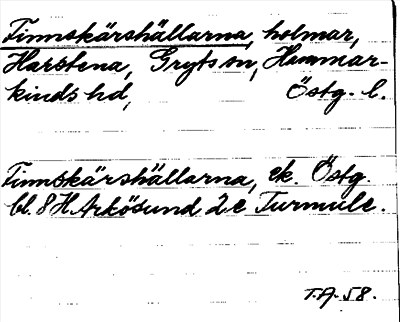 Finnskärshällarna, holmar,
Harstena, Gryts sn, Hammar-
kinds hd, Östg. l.
Finnskärshällarna, ek. Östg.
bl. 8 H Arkösund 2 e Turmulc.
T.A. 58.